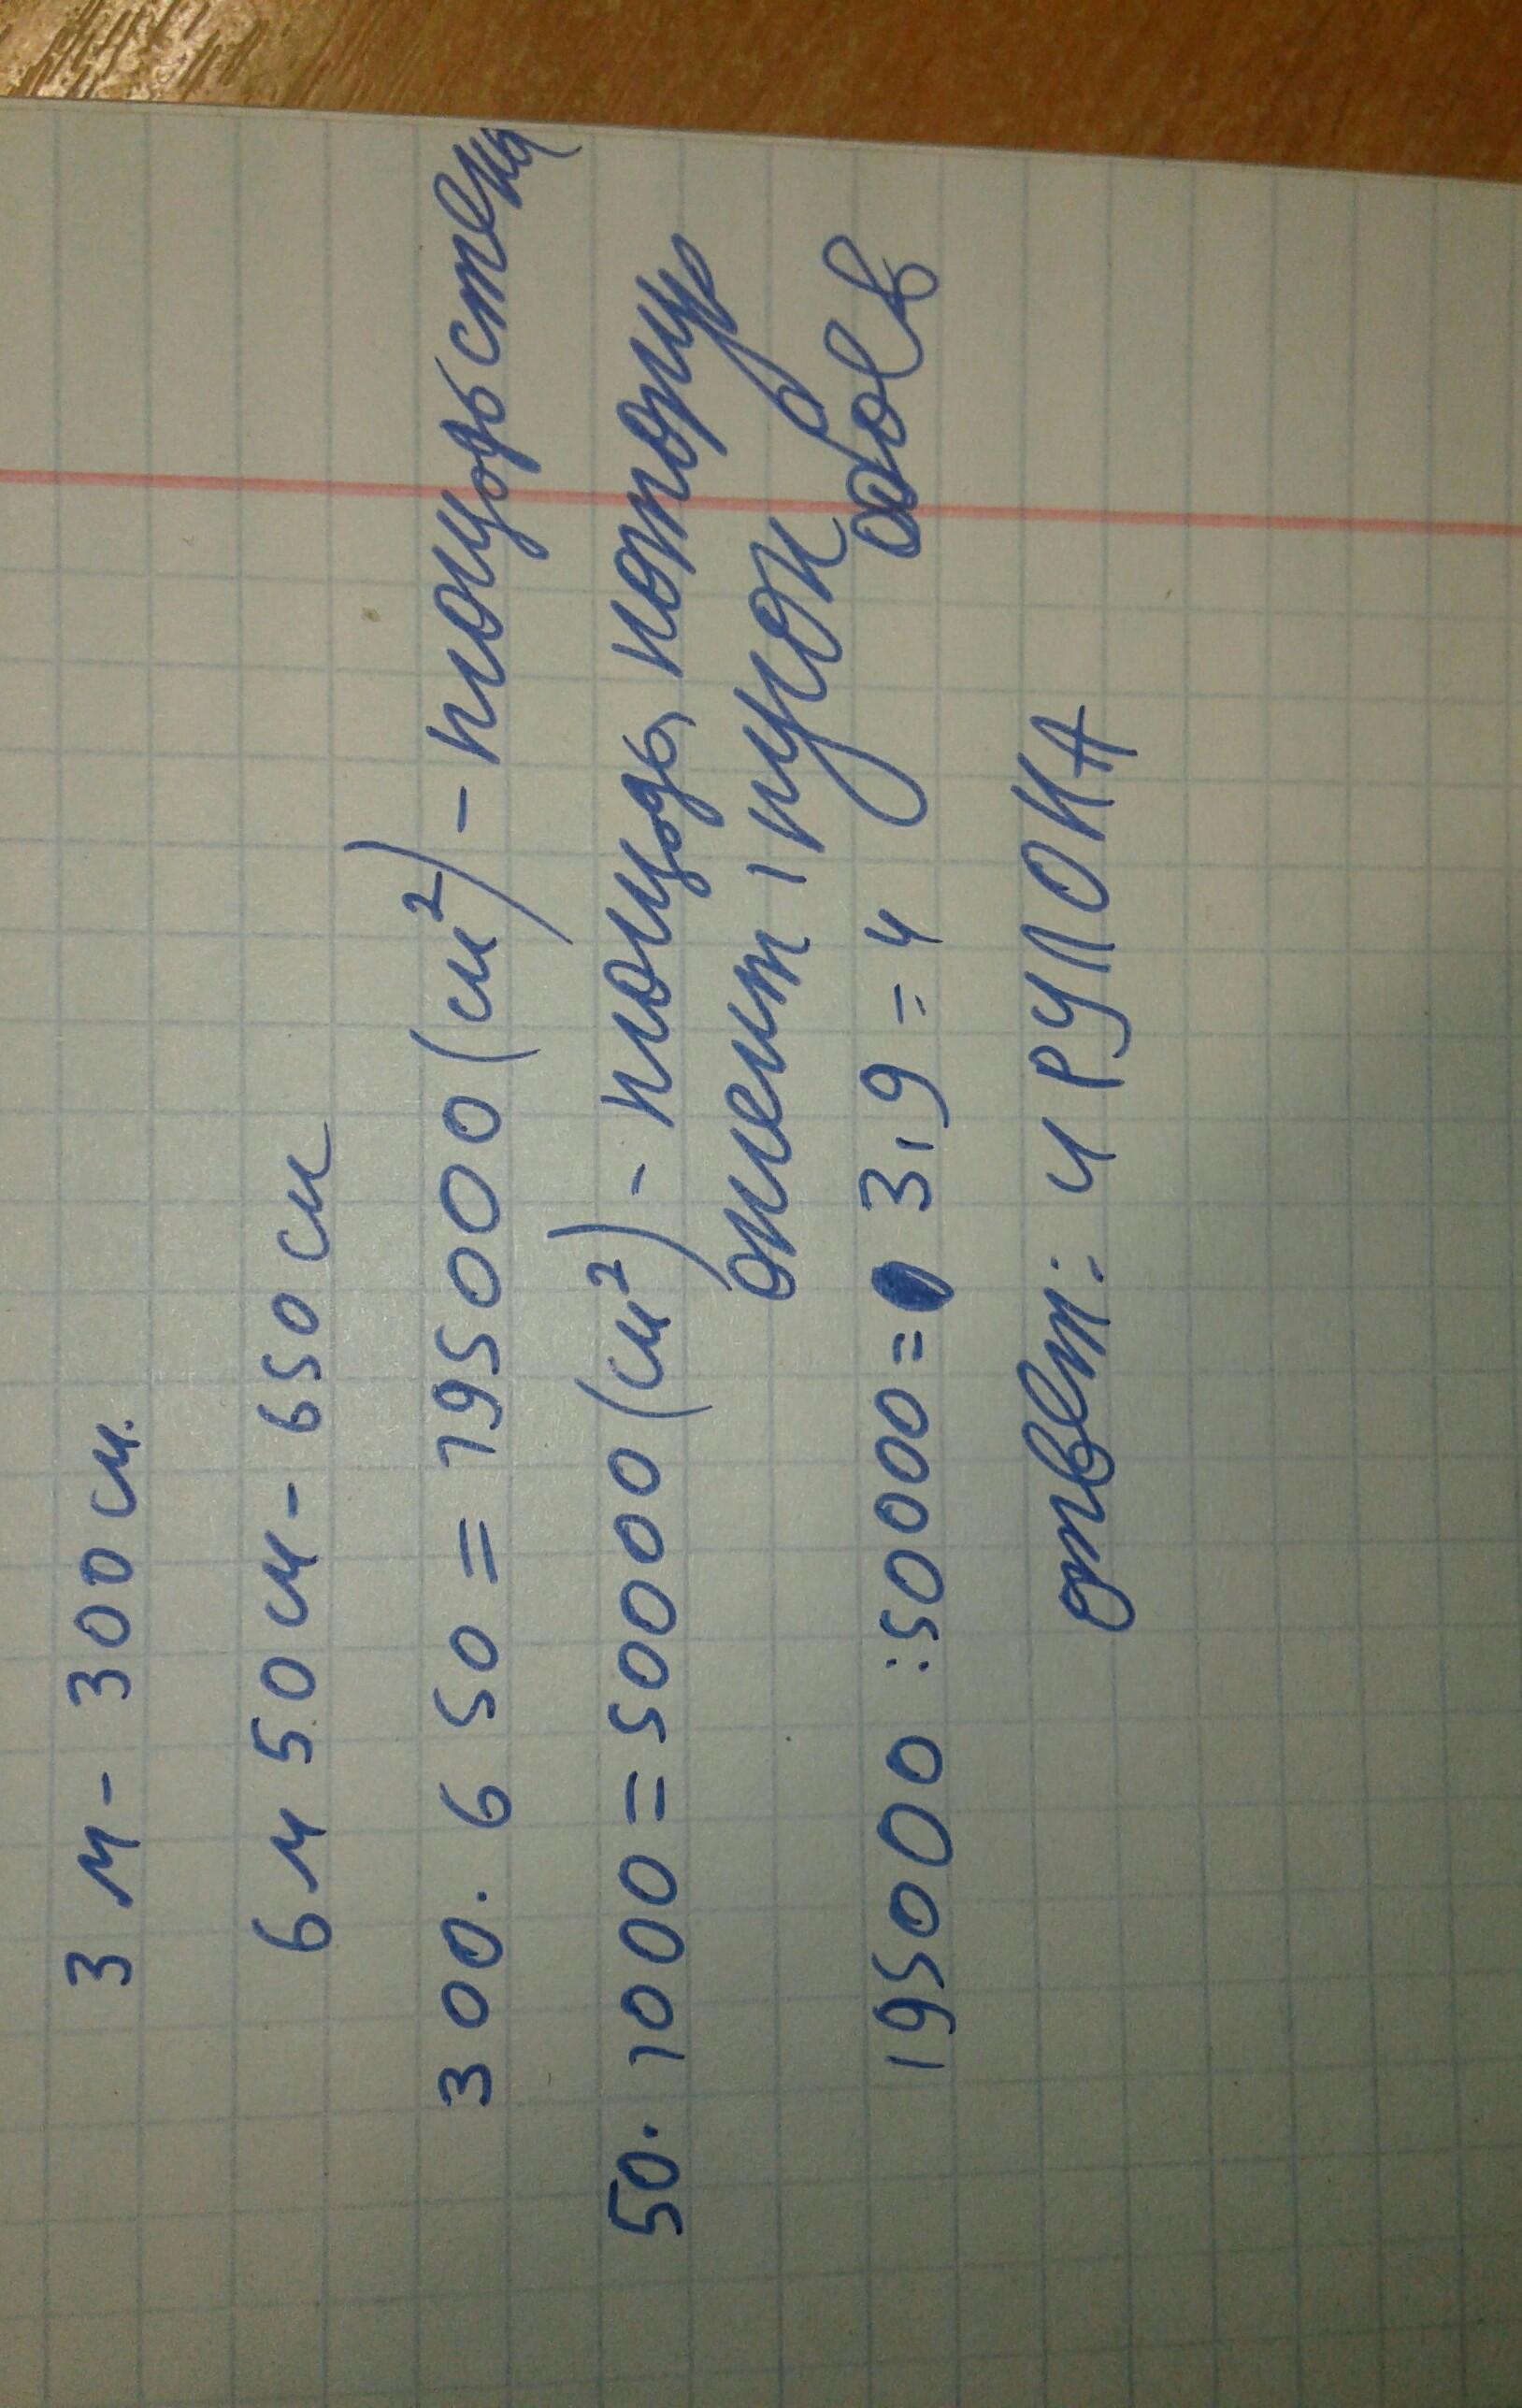 3 м - 300 см.
6 м 50 см - 650 см
300 . 650 = 195000 (см²) - площадь стены
50 . 1000 = 50000 (см²) - площадь, которую
оклеит 1 рулон
обоев
195000 : 50000 = 3,9 = 4
ответ: 4 РУЛОНА